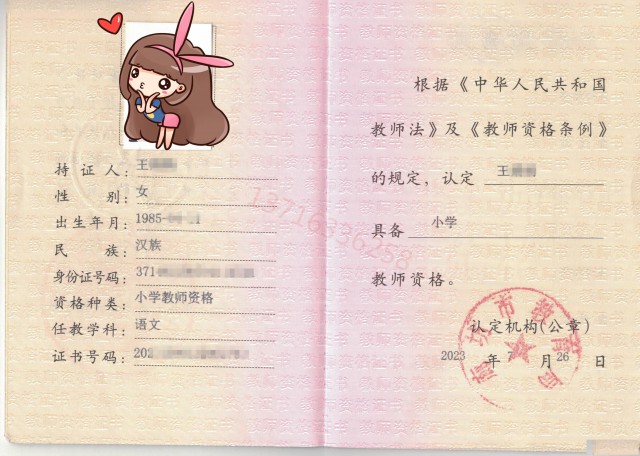 持证人：王
性别：女
出生年月：1985-
民族：汉族
身份证号码：371
资格种类：小学教师资格
任教学科：语文
证书号码：202
根据《中华人民共和国
教师法》及《教师资格条例》
的规定，认定 王
具备 小学
教师资格。
认定机构(公章)
2023 年 7 月 26 日
市教育局
13716336258